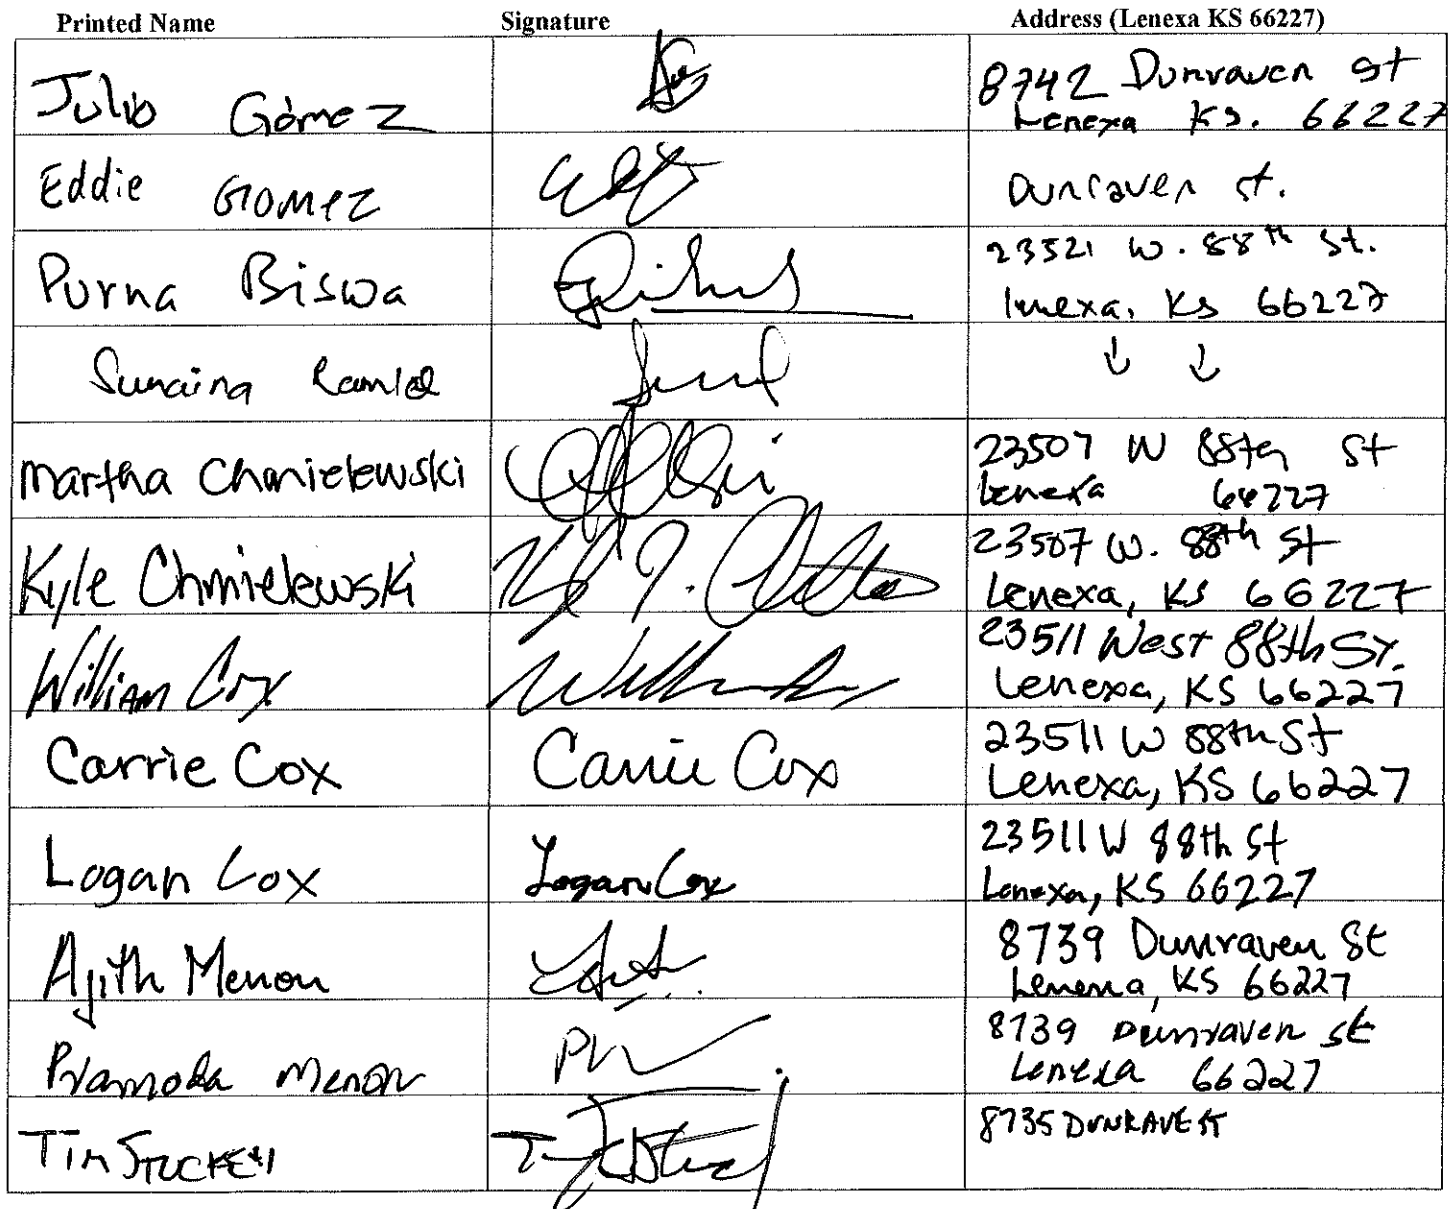 Printed Name Signature Address (Lenexa KS 66227)
Julio Gómez 8742 Dunraven St
Lenexa KS. 66227
Eddie Gomez Dunraven st.
Purna Biswa 23521 W. 88th St.
lenexa, KS 66227
Sunaina ↓ ↓
Martha Chmielewski 23507 W 88th St
Lenexa 66227
Kyle Chmielewski 23507 W. 88th St
Lenexa, KS 66227
William Cox 23511 West 88th St.
Lenexa, KS 66227
Carrie Cox Carrie Cox 23511 W 88th St
Lenexa, KS 66227
Logan Cox Logan Cox 23511 W 88th St
Lenexa, KS 66227
Ajith Menon 8739 Dunraven St
Lenexa, KS 66227
Pramoda Menon 8739 Dunraven st
Lenexa 66227
Tim 8735